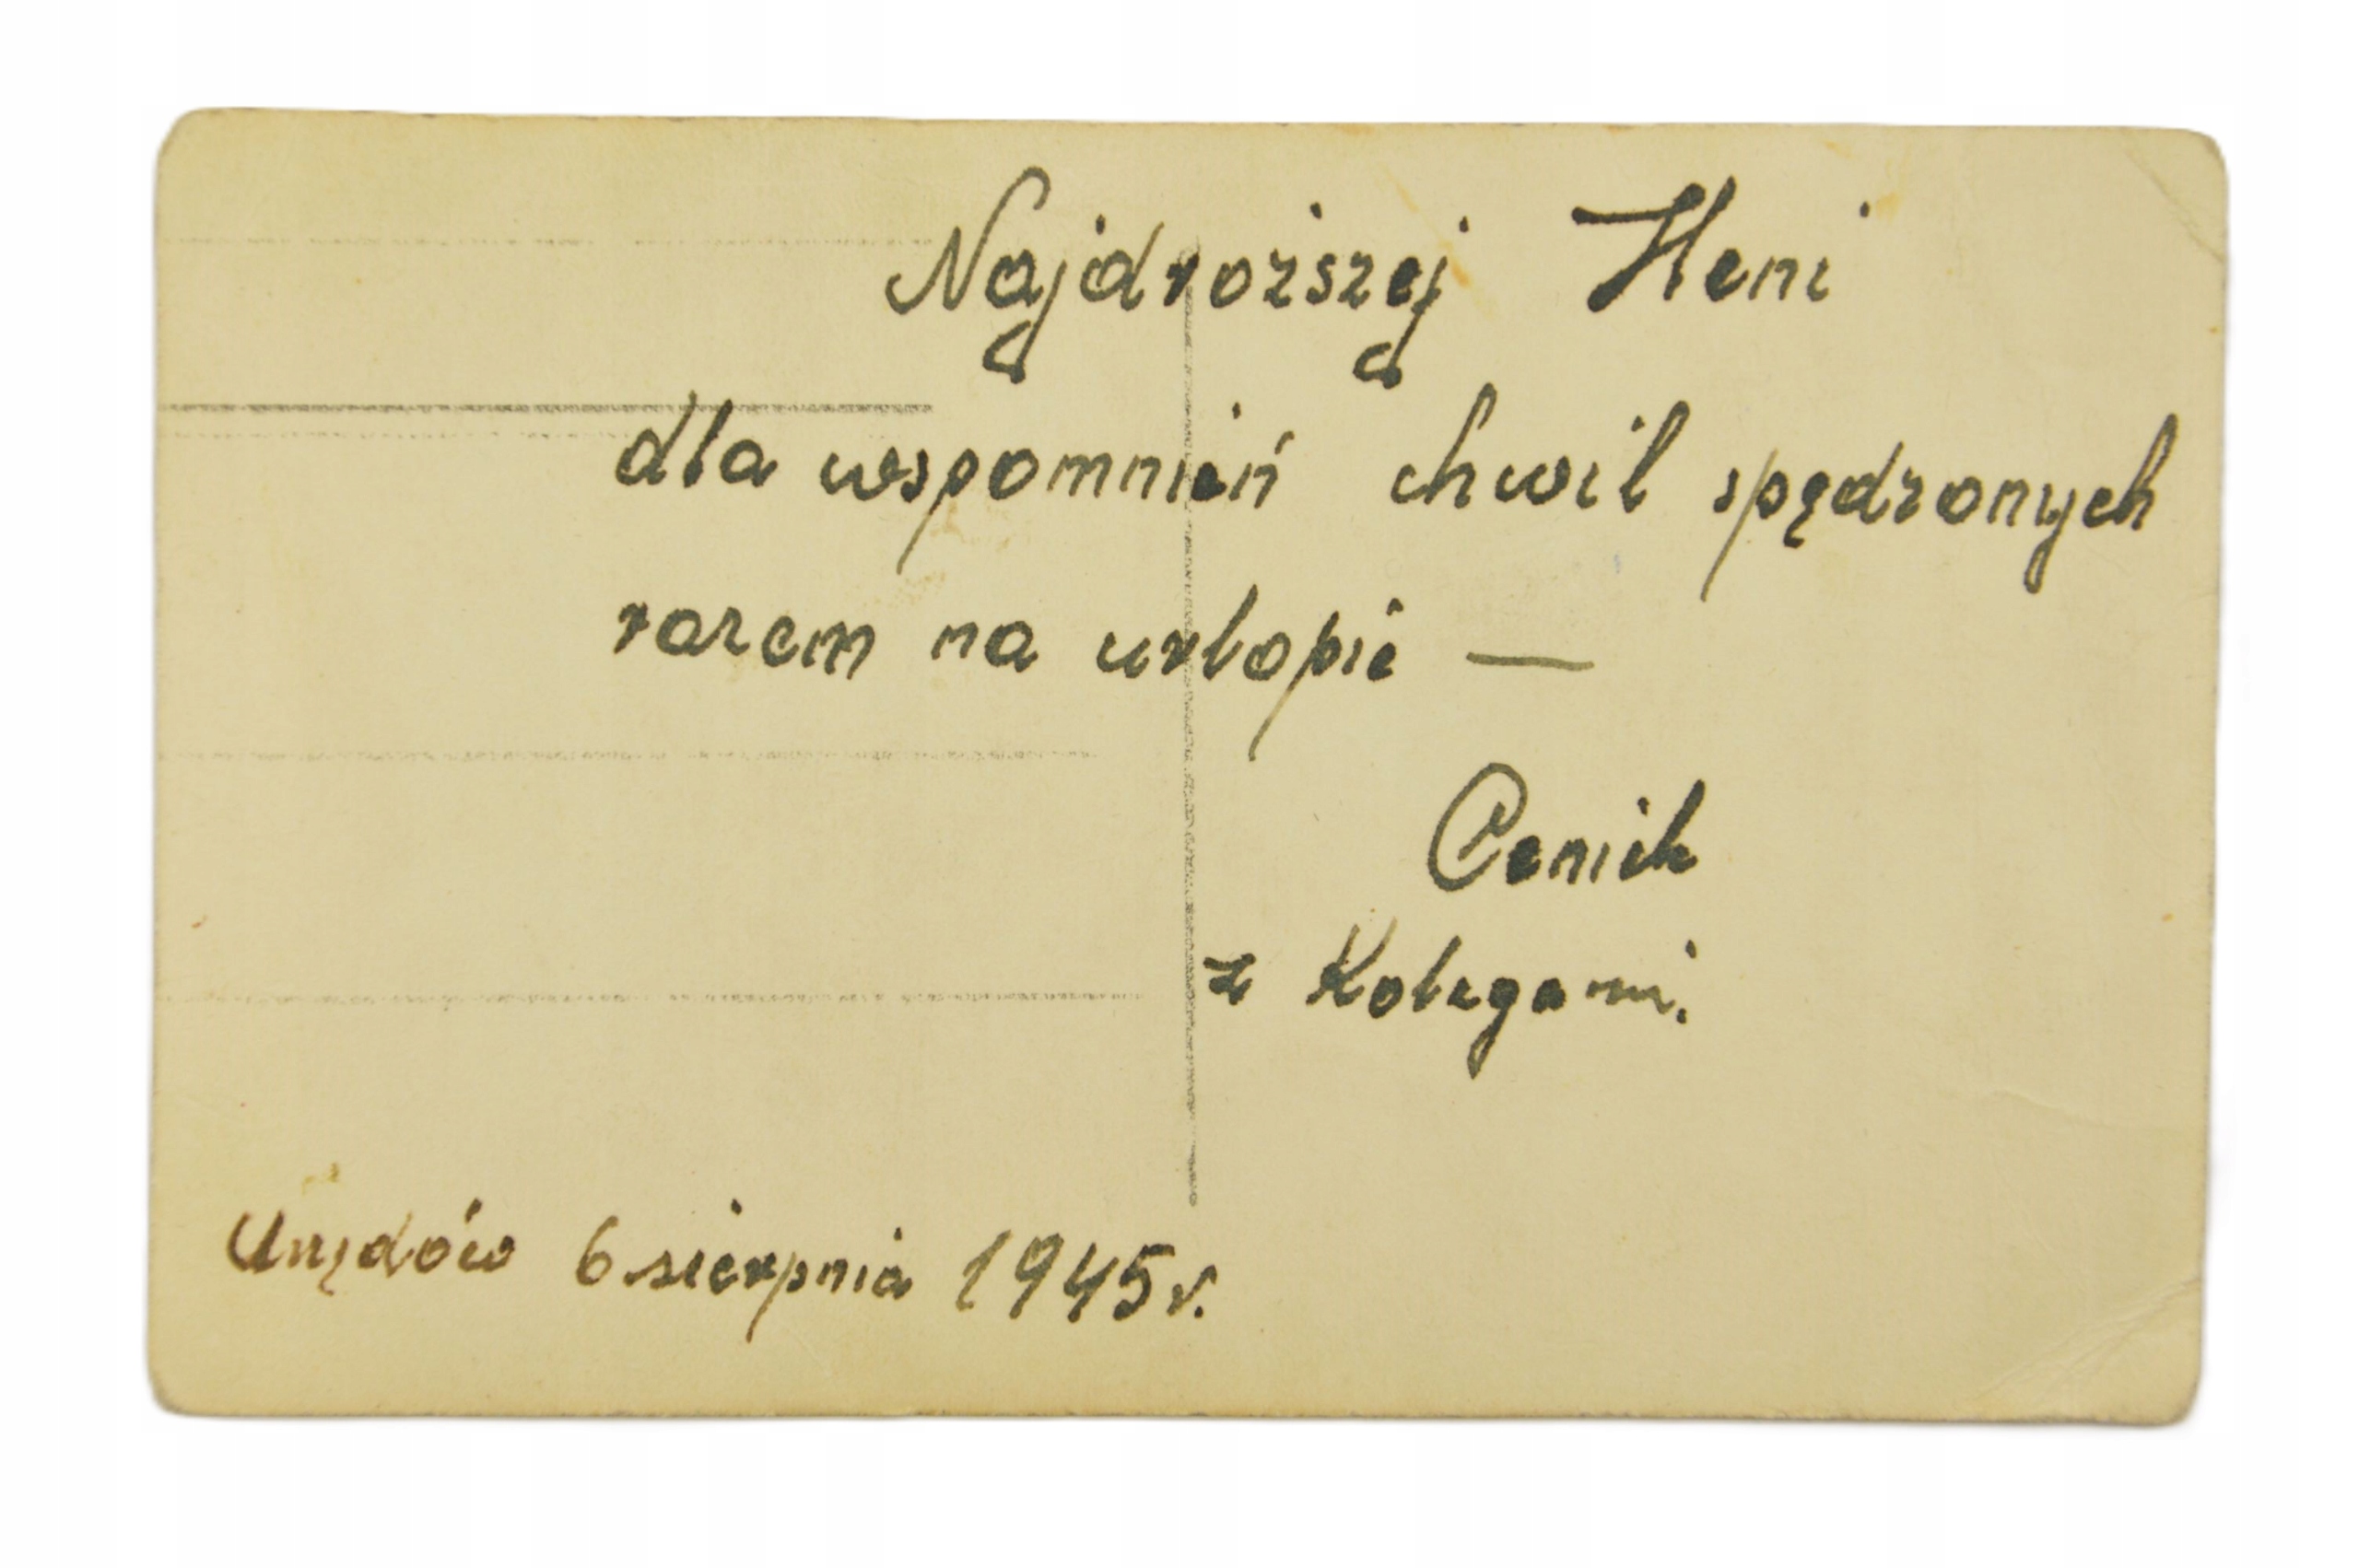 Najdroższej Heni
dla wspomnień chwil spędzonych
razem na urlopie —
Cenik
z Kolegami.
Urzędów 6 sierpnia 1945 r.